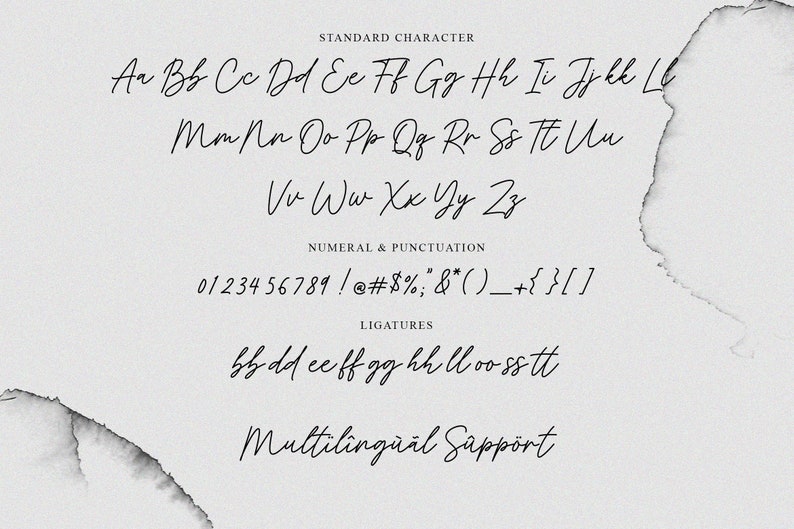 STANDARD CHARACTER
Aa Bb Cc Dd Ee Ff Gg Hh Ii Jj kk Ll
Mm Nn Oo Pp Qq Rr Ss Tt Uu
Vv Ww Xx Yy Zz
NUMERAL & PUNCTUATION
0123456789!@#$%;"&*()_+{}[]
LIGATURES
bb dd ee ff gg hh ll oo ss tt
Multïlîngùãl Sûppört